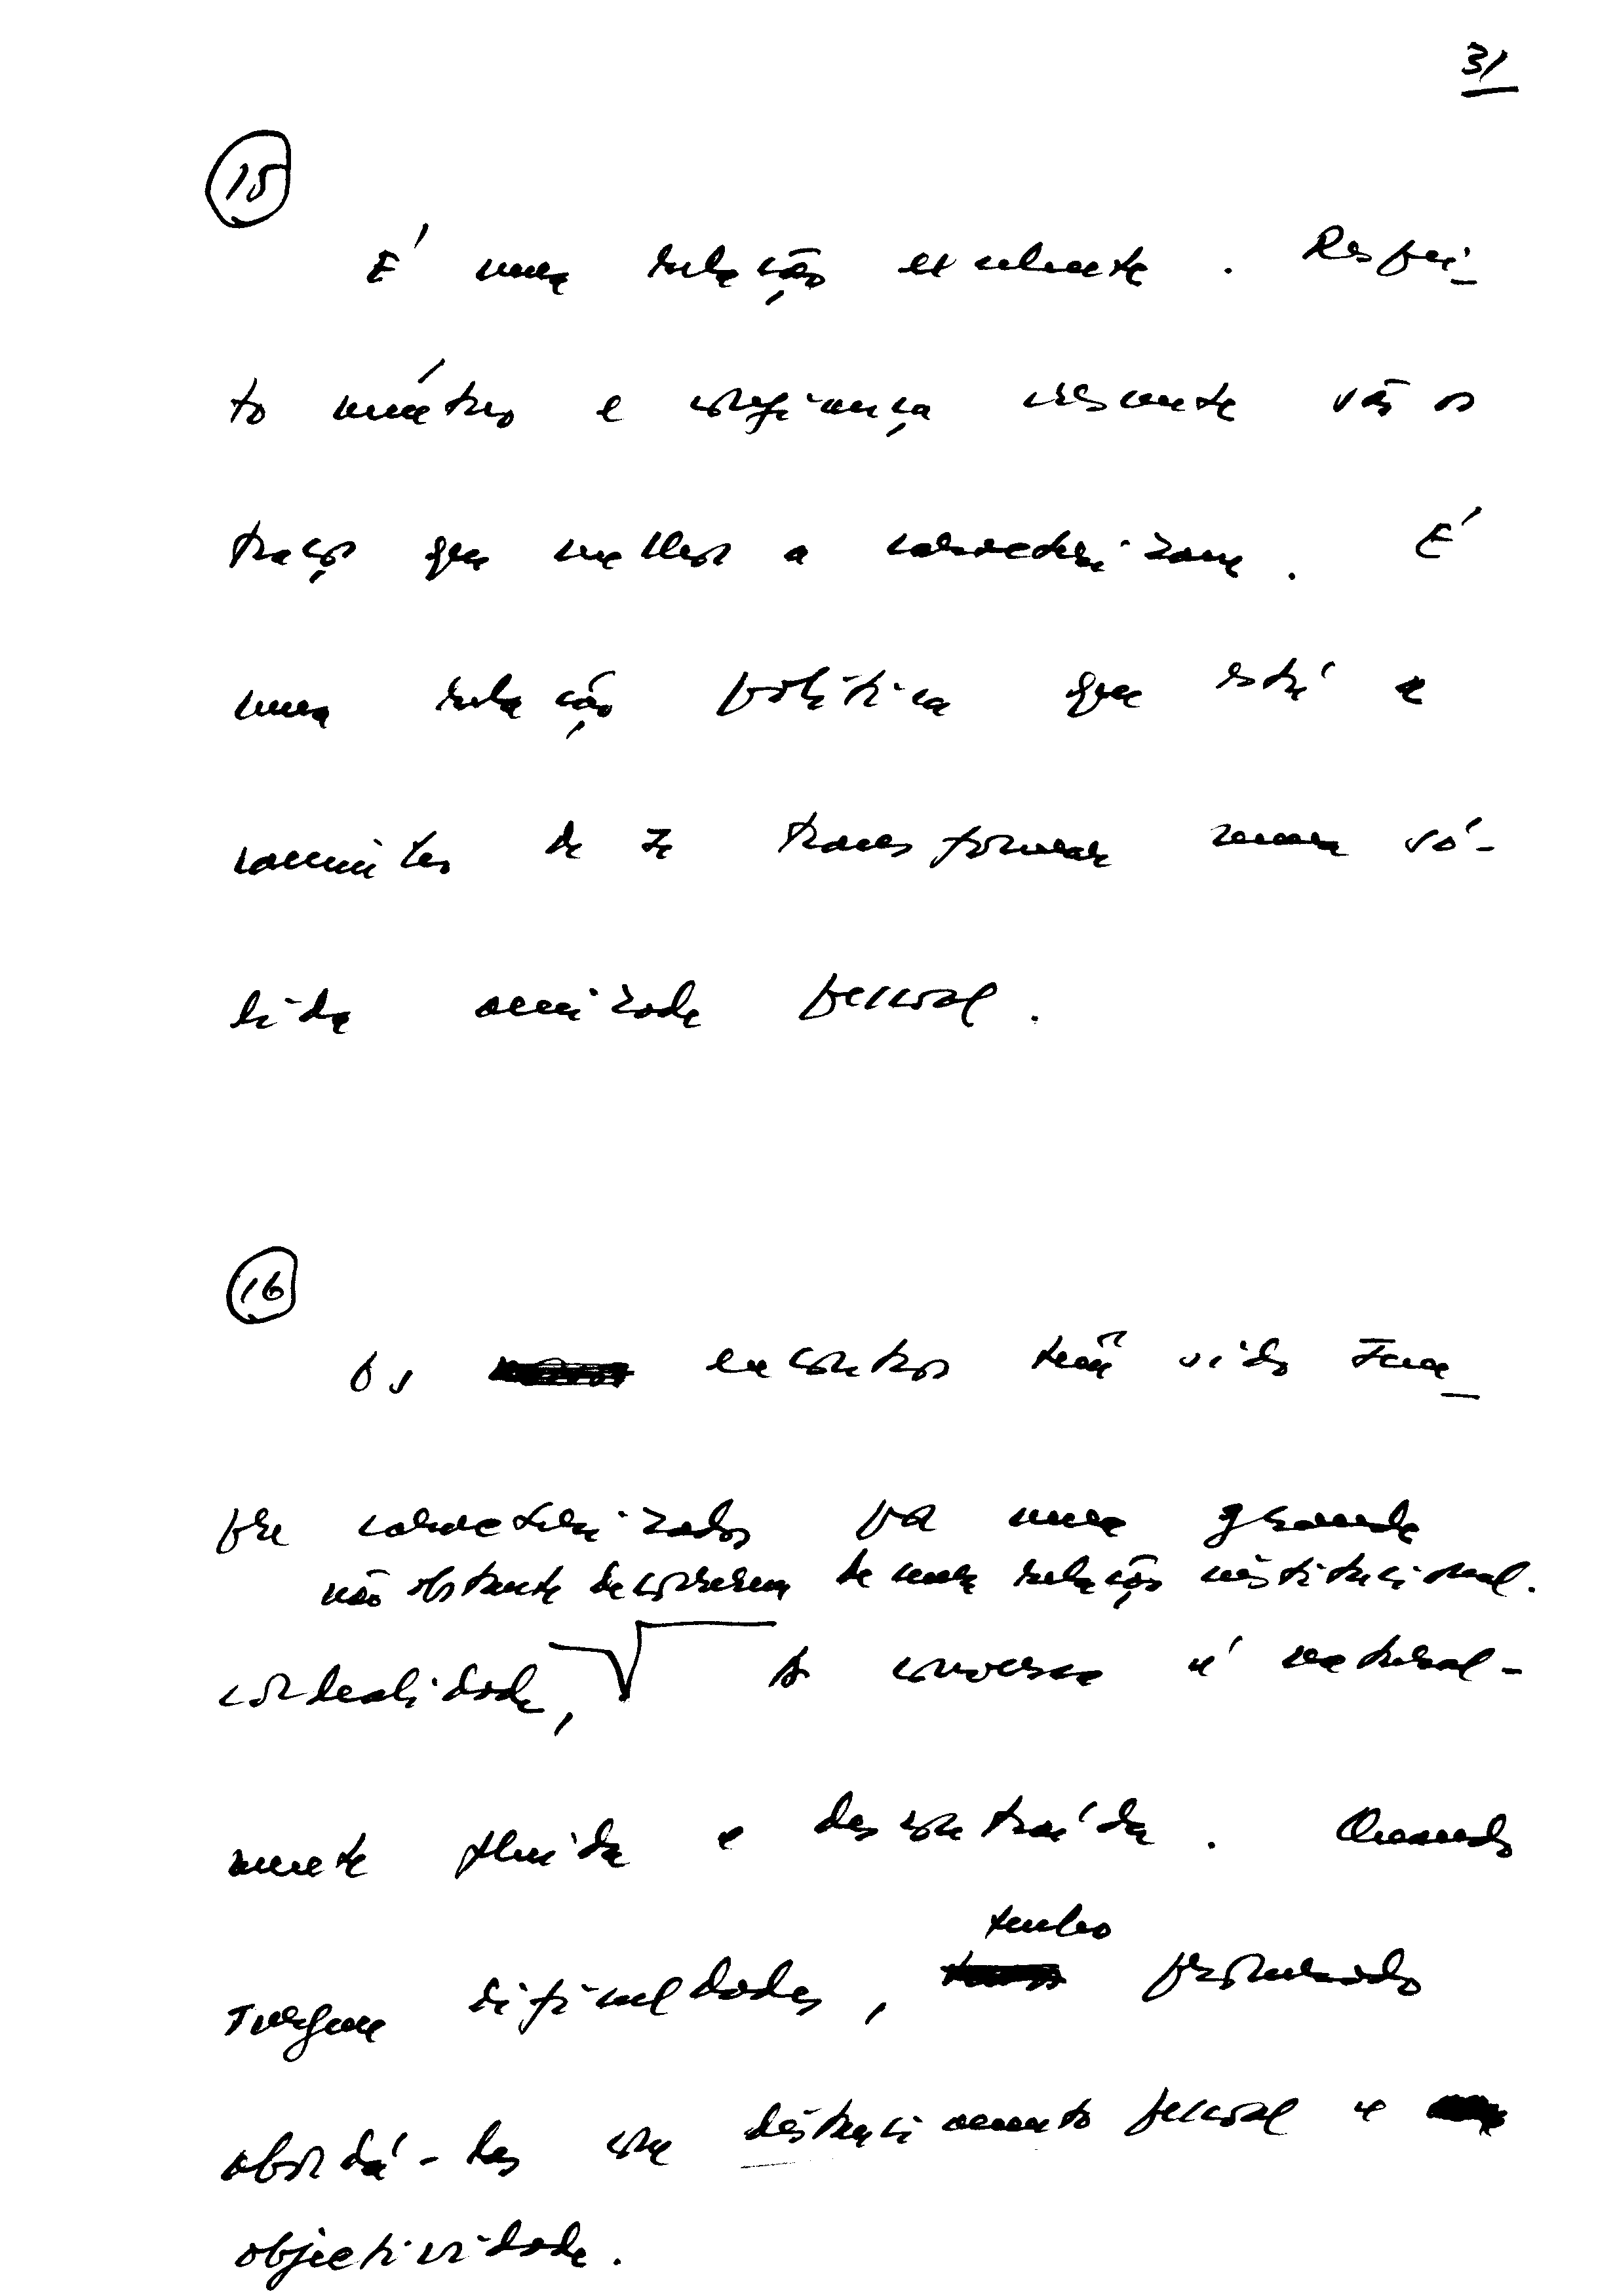 31
15
É uma relação excelente. Respei-
to mútuo e confiança crescente são os
traços que melhor a caracterizam. É
uma relação política que está a
caminho de se transformar numa só-
lida amizade pessoal.
16
Os encontros têm sido sem-
pre caracterizados por uma grande
não obstante decorrerem de uma relação institucional.
cordealidade, A conversa é natural-
mente fluida e descontraída. Quando
surgem dificuldades, tenho procurado
abordá-las com distanciamento pessoal e
objectividade.